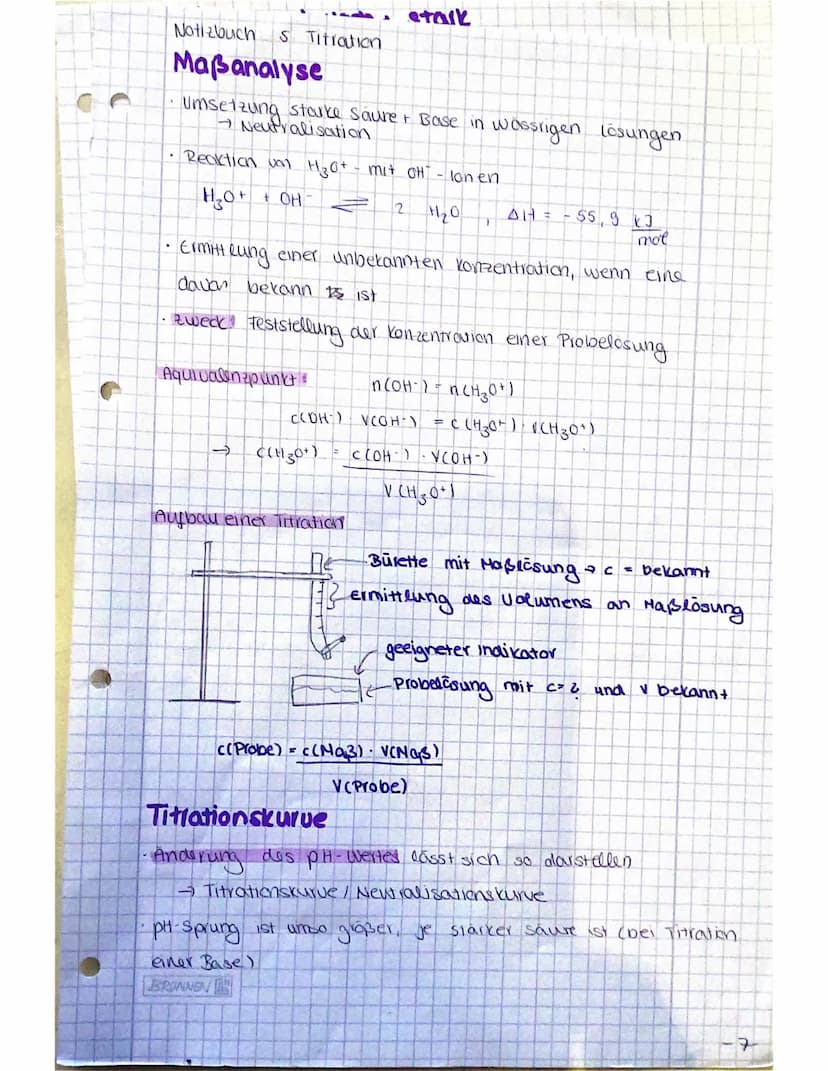 etnik
Notizbuch S Titration
Maßanalyse
· Umsetzung starke Säure + Base in wässrigen Lösungen
→ Neutralisation
· Reaktion von H₃O⁺ - mit OH⁻ - Ionen
H₃O⁺ + OH⁻ ⇌ 2 H₂O , ΔH = - 55,9 kJ/mol
· Ermittlung einer unbekannten Konzentration, wenn eine
davon bekann ist
· Zweck: Feststellung der Konzentration einer Probelösung
Äquivalenzpunkt: n(OH⁻) = n(H₃O⁺)
c(OH⁻) · V(OH⁻) = c(H₃O⁺) · V(H₃O⁺)
→ c(H₃O⁺) = c(OH⁻) · V(OH⁻)
V(H₃O⁺)
Aufbau einer Titration
Bürette mit Maßlösung → c = bekannt
Ermittlung des Volumens an Maßlösung
geeigneter Indikator
Probelösung mit c=? und V bekannt
c(Probe) = c(Maß) · V(Maß)
V(Probe)
Titrationskurve
· Änderung des pH-Wertes lässt sich so darstellen
→ Titrationskurve / Neutralisationskurve
· pH-Sprung ist umso größer, je stärker Säure ist (bei Titration
einer Base)
BRUNNEN
-7-